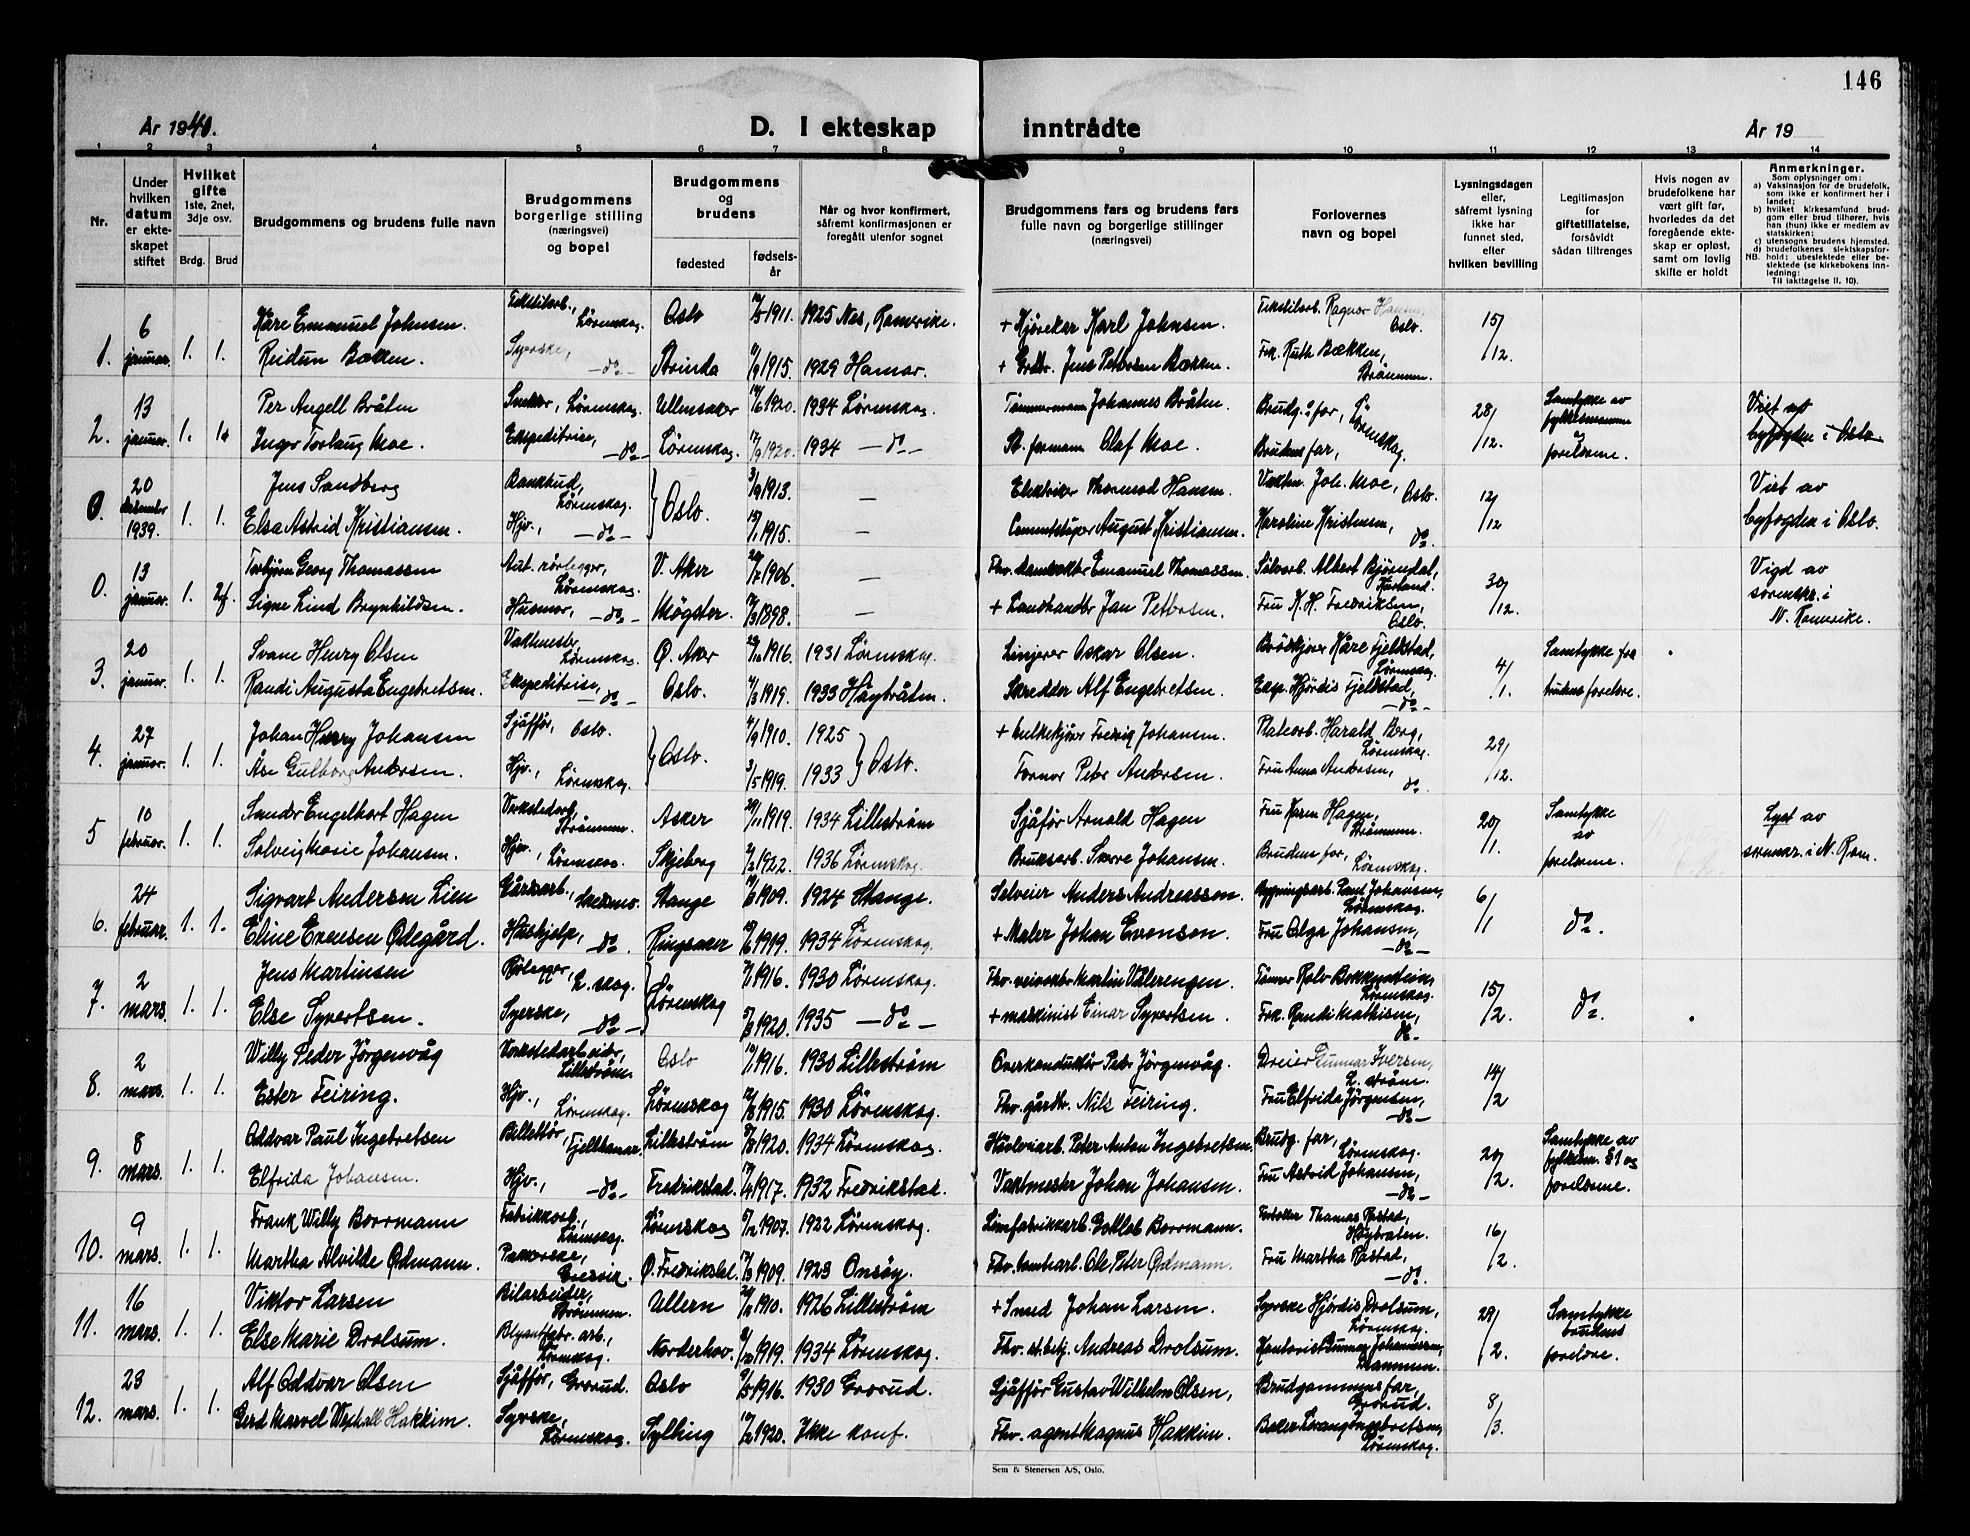 146
År 1940.
D. I ekteskap inntrådte
År 19
1 2 3 4 5 6 7 8 9 10 11 12 13 14
Nr.
Under
hvilken
datum
er ekte-
skapet
stiftet
Hvilket
gifte
1ste, 2net,
3dje osv.
Brdg. Brud
Brudgommens og brudens fulle navn
Brudgommens
borgerlige stilling
(næringsvei)
og bopel
Brudgommens
og
brudens
fødested
fødsels-
år
Når og hvor konfirmert,
såfremt konfirmasjonen er
foregått utenfor sognet
Brudgommens fars og brudens fars
fulle navn og borgerlige stillinger
(næringsvei)
Forlovernes
navn og bopel
Lysningsdagen
eller,
såfremt lysning
ikke har
funnet sted,
efter
hvilken bevilling
Legitimasjon
for
giftetillatelse,
forsåvidt
sådan tiltrenges
Hvis nogen av
brudefolkene har
vært gift før,
hvorledes da det
foregående ekte-
skap er opløst,
samt om lovlig
skifte er holdt
Anmerkninger.
Som oplysninger om:
a) Vaksinasjon for de brudefolk,
som ikke er konfirmert her i
landet;
b) hvilket kirkesamfund brud-
gom eller brud tilhører, hvis
han (hun) ikke er medlem av
statskirken;
c) utensogns brudens hjemsted.
d) brudefolkenes slektskapsfor-
NB. hold: ubeslektede eller be-
slektede (se kirkebokens inn-
ledning:
Til iakttagelse II. 10).
6 Kåre Emanuel Johnsen. Tekstilarb., Lørenskog. Oslo 1911. 1925 Nes, Romerike. + Kjøreker Karl Johnsen. Tekstilarb. Ragnar Oslo. 15/12.
1. januar. 1. 1. Reidun Bækken. Syerske, -do- Strinda 1915. 1929 Hamar. + Grdbr. Jens Petersen Bækken. Frk. Ruth Bækken, Strømmen.
13 Per Angell Bråten Snekker, Lørenskog. Ullensaker 1920. 1934 Lørenskog. Tømmermann Johannes Bråten. Brudg.s far, Lørenskog. 28/12. Samtykke av fylkesmannen Viet av
2. januar. 1. 1. Inger Torlaug Moe. Ekspeditrise, -do- Lørenskog. 1920. 1934 -do- St. formann Olaf Moe. Brudens far, og foreldrene. byfogden i Oslo
20 Jens Sandberg Bankbud, Lørenskog. Oslo. 1913. - Elektriker Thormod Hansen. Vaktm. Joh. Moe, Oslo. 12/12 Viet av
0. desember 1939. 1. 1. Elsa Astrid Kristiansen. Hjv., -do- 1915. - Cementstøper August Kristiansen. Karoline Kristensen, do. byfogden i Oslo.
13 Torbjørn Georg Thomassen Aut. rørlegger, Lørenskog. V. Aker 1906. - Fhv. Emanuel Thomassen. Sølvarb. Albert Bjørndal, 30/12. Vigd av
0. januar. 1. 2. Signe Lind Brynhildsen. Husmor, -do- Møgster 1898. - + Landhandler Jan Pettersen. Fru K. H. Fredriksen, Oslo. sorenskr. i N. Romerike.
20 Svane Henry Olsen Vaktmester, Lørenskog. Ø. Aker 1916. 1931 Lørenskog. Linjerer Oskar Olsen. Brødkjører Kåre Fjeldstad, Lørenskog. 4/1. Samtykke fra
3. januar. 1. 1. Randi Augusta Engebretsen. Ekspeditrise, -do- Oslo. 1919. 1933 Høybråten. Skredder Alf Engebretsen. Eksp. Hjørdis Fjeldstad, -do- brudens foreldre.
27 Johan Henry Johansen Sjåfför, Oslo. Oslo. 1910. 1925 Oslo. + Fredrig Johansen. Platearb. Harald Borg, Lørenskog. 29/12.
4. januar. 1. 1. Åse Gulborg Andersen. Hjv., Lørenskog. 1919. 1933 Former Peter Andersen. Fru Anna Andersen, do.
10 Sander Engelhart Hagen Verkstedarb. Strømmen. Asker 1919. 1934 Lillestrøm Sjåför Arnold Hagen Fru Karen Hagen, Strømmen. 20/1. Samtykke av foreldrene. Lyst av
5 februar. 1. 1. Solveig Marie Johansen. Hjv., Lørenskog. Skjeberg 1922. 1936 Lørenskog. Bruksarb. Sverre Johansen. Brudens far, Lørenskog. sorenskr. i N. Rom.
24 Sigvart Andersen Lien Gårdsarb., Skedsmo. Stange 1909. 1924 Stange. Selveier Anders Andreassen. Bygningsarb. Paul Johansen, Lørenskog. 6/1 do.
6. februar. 1. 1. Eline Evensen Ødegård. Hushjelp, do. Ringsaker 1919. 1934 Lørenskog. + Maler Johan Evensen. Fru Olga Johansen, -do-
2 Jens Martinsen Rørlegger, L.skog. Lørenskog 1916. 1930 Lørenskog. Fhv. veivokter Martin Vålerengen. Lørenskog. 15/2. do.
7. mars. 1. 1. Else Syvertsen. Syerske, -do- 1920. 1935 -do- + maskinist Einar Syvertsen. Frk. Randi Mathisen, do.
2 Willy Peder Jörgenvåg Verkstedarbeider, Lillestrøm. Oslo 1916. 1930 Lillestrøm Overkonduktör Peder Jörgenvåg. Dreier Gunnar Iversen, L.strøm. 14/2
8. mars. 1. 1. Ester Feiring. Hjv., Lørenskog. Lørenskog 1915. 1930 Lørenskog. Fhv. gårdbr. Nils Feiring. Fru Elfrida Jörgensen, -do-
8 Oddvar Paul Ingebretsen Billettør, Fjellhamar. Lillestrøm 1920. 1934 Lørenskog. Peter Anton Ingebretsen. Brudg. far, Lørenskog. 20/2. Samtykke av fylkesm. § 1 og foreldrene.
9. mars. 1. 1. Elfrida Johansen. Hjv., -do- Fredrikstad. 1917. 1932 Fredrikstad. Vaktmester Johan Johansen. Fru Astrid Johansen, -do-
9 Frank Willy Borrmann Fabrikkarb., Lørenskog. Lørenskog 1907. 1922 Lørenskog. Limfabrikkarb. Gottlieb Borrmann. Thomas Råstad, Høybråten. 16/2.
10. mars. 1. 1. Martha Alvilde Ødmann. Ø. Fredrikstad. 1909. 1923 Onsøy. Fhv. tomtearb. Ole Peter Ødmann. Fru Martha Råstad, -do-
16 Viktor Larsen Bilarbeider, Strømmen. Ullern 1910. 1926 Lillestrøm + Smed Johan Larsen. Syerske Hjördis Drolsum, Lørenskog. 29/2. Samtykke brudens foreldre.
11. mars. 1. 1. Else Marie Drolsum. Blyantfabr. arb., Lørenskog. Norderhov. 1919. 1934 Lørenskog. Fhv. st.betj. Andreas Drolsum. Kontorist Gunnar Johannesen, Drammen.
23 Alf Oddvar Olsen Sjåfför, Grorud. Oslo 1916. 1930 Grorud. Sjåfför Gustav Wilhelm Olsen, Brudgommens far, Grorud. 8/3.
12. mars. 1. 1. Gerd Marvel Wexhall Hakkim. Syerske, Lørenskog. Sylling 1920. Ikke konf. Fhv. agent Magnus Hakkim. Baker Ingebretsen, Lørenskog.
Sem & Stenersen A/S, Oslo.